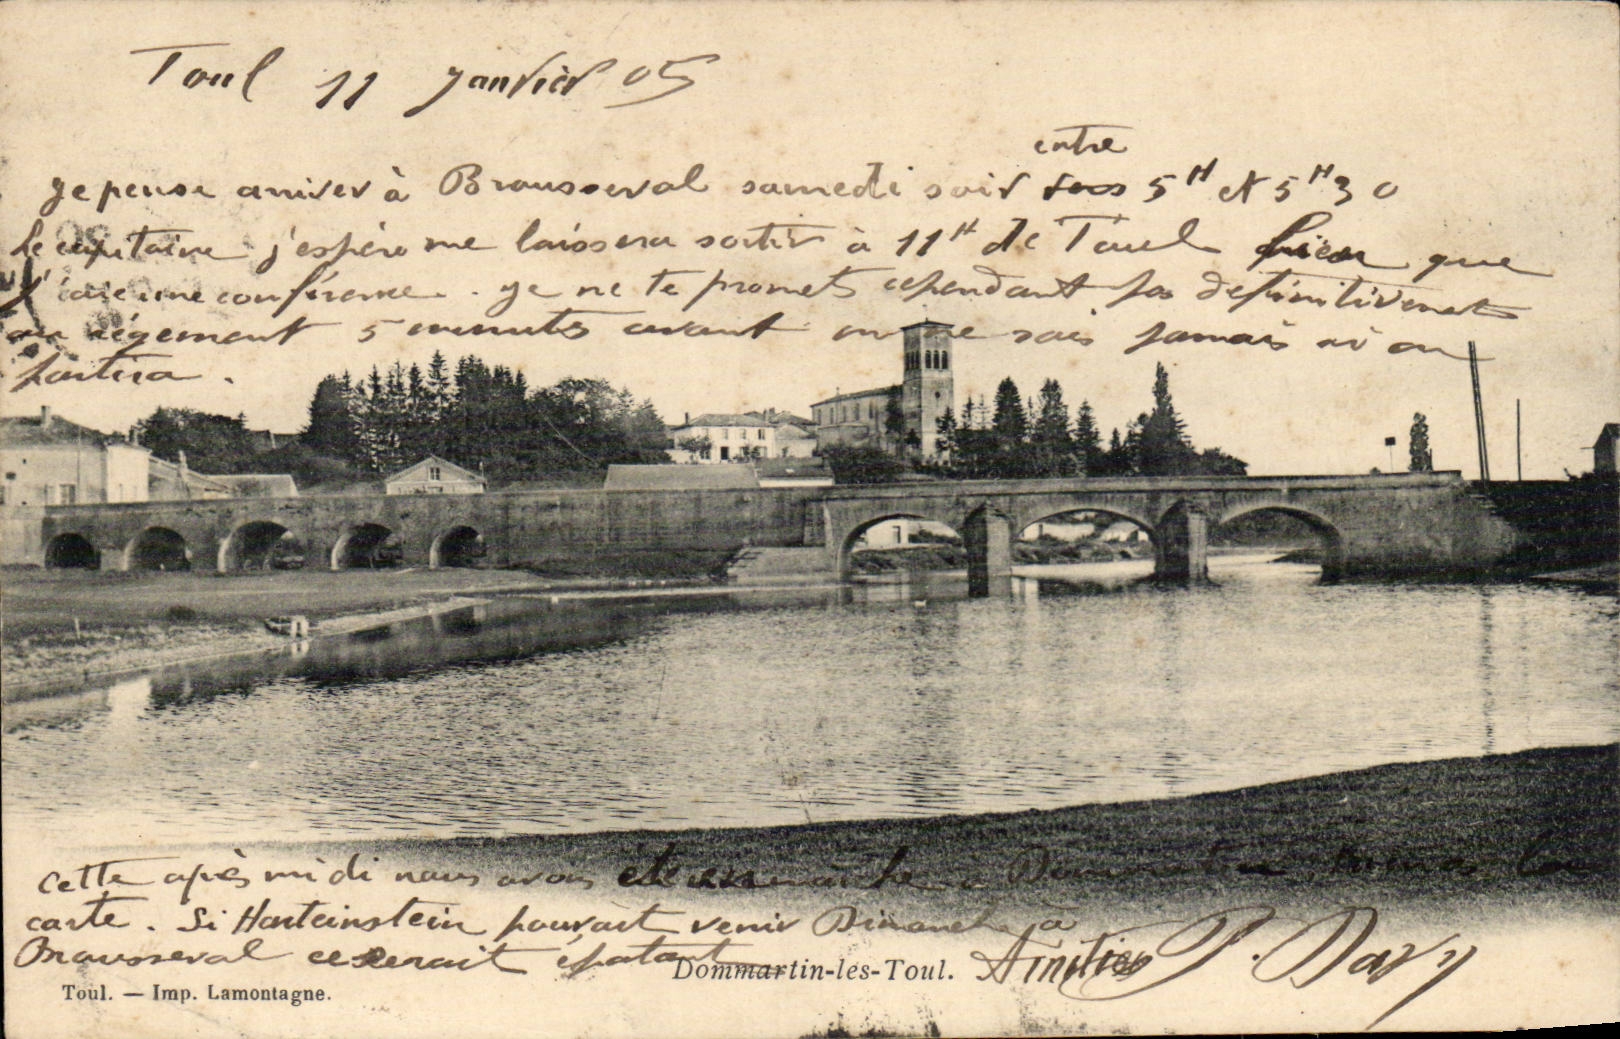 Toul 11 Janvier 05
entre
Je pense arriver à Brousseval samedi soir 5H et 5H30
Le capitaine j'espère me laissera sortir à 11H de Toul bien que
j'aie une conférence. Je ne te promets cependant pas definitivement
au régement 5 minutes avant on ne sais jamais si on
partira.
cette après midi nous avons été en marche à Dommartin, la
carte. Si Harteinstein pouvait venir Dimanche à
Brousseval ce serait épatant
Amitiés P. Davy
Dommartin-les-Toul.
Toul. — Imp. Lamontagne.